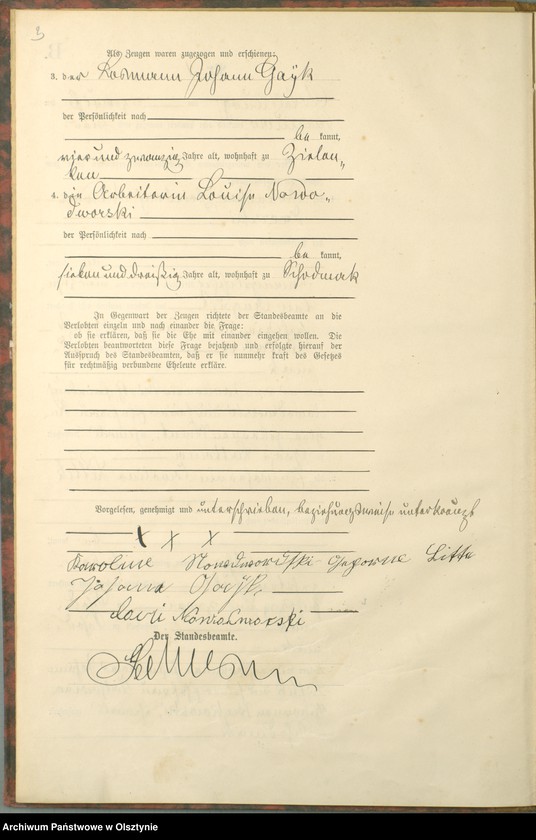 3
Als Zeugen waren zugezogen und erschienen:
3. der Losmann Johann Gayk
der Persönlichkeit nach
be kannt,
vier und zwanzig Jahre alt, wohnhaft zu Zielon„
ken
4. die Arbeiterin Louise Nowo„
dworski
der Persönlichkeit nach
be kannt,
sieben und dreißig Jahre alt, wohnhaft zu Schodmak
In Gegenwart der Zeugen richtete der Standesbeamte an die
Verlobten einzeln und nach einander die Frage:
ob sie erklären, daß sie die Ehe mit einander eingehen wollen. Die
Verlobten beantworteten diese Frage bejahend und erfolgte hierauf der
Ausspruch des Standesbeamten, daß er sie nunmehr kraft des Gesetzes
für rechtmäßig verbundene Eheleute erkläre.
Vorgelesen, genehmigt und unterschrieben, beziehungsweise unterkreuzt
X X X
Karoline Nowodworski geborne Litta
Johann Gayk
Nowodworski
Der Standesbeamte.
Archiwum Państwowe w Olsztynie